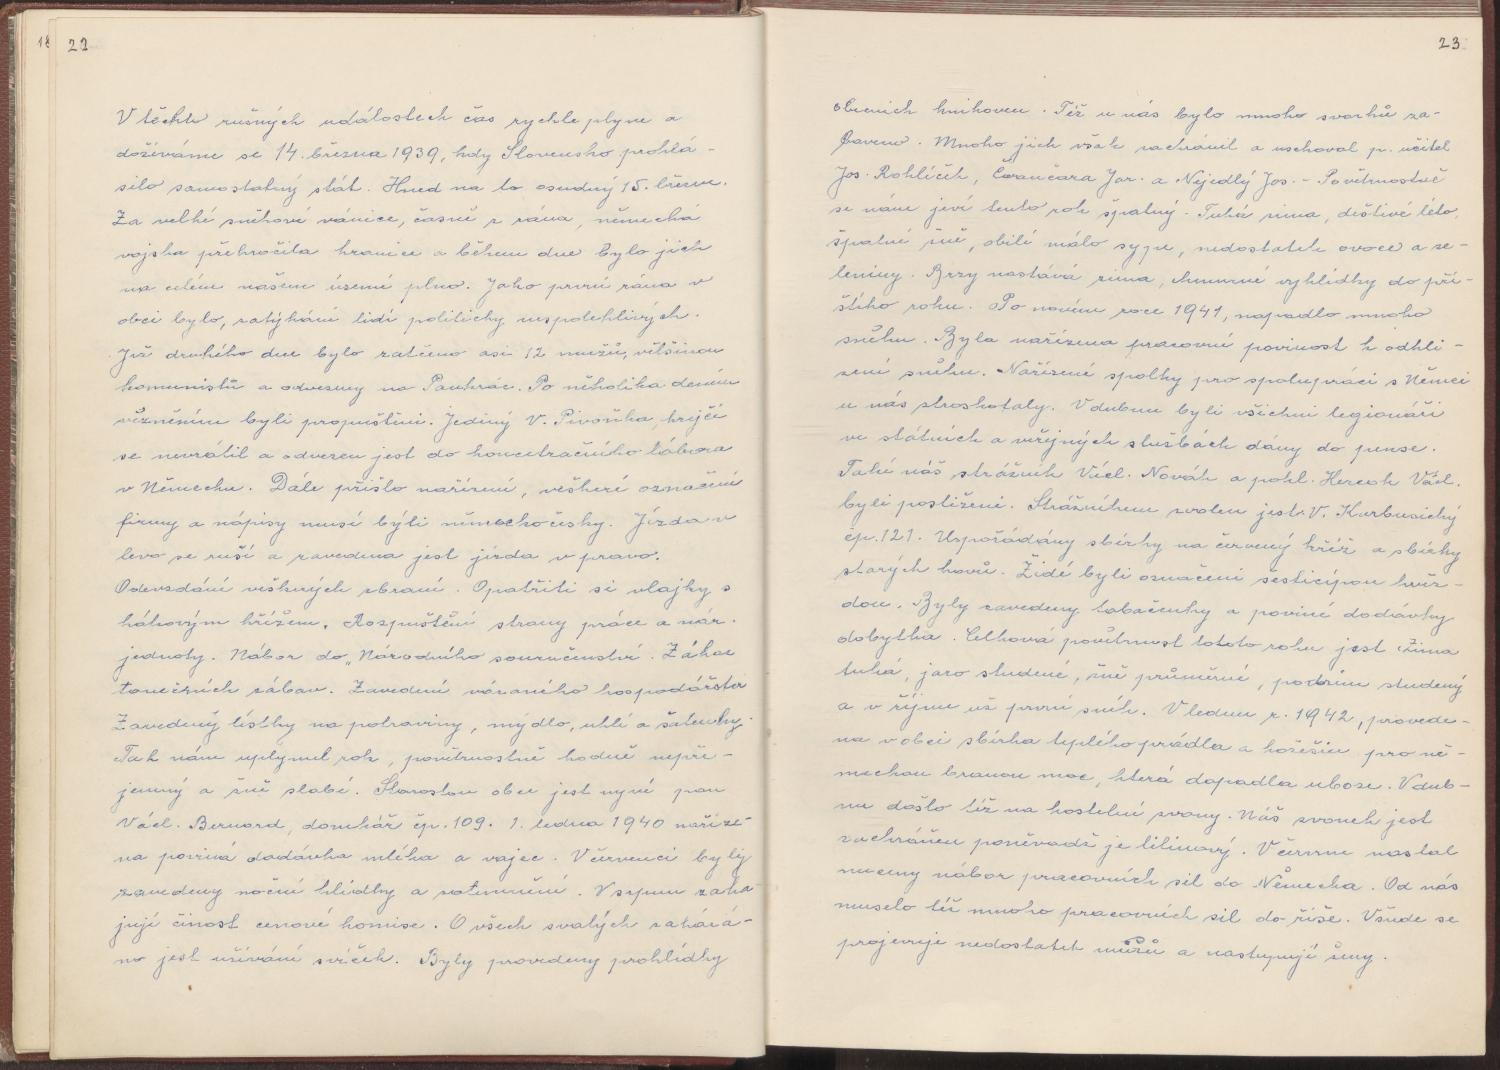 18 22
V těchto rušných událostech čas rychle plyne a
dožíváme se 14. března 1939, kdy Slovensko prohlá-
silo samostatný stát. Hned na to osudný 15. březen.
Za velké sněhové vánice, časně z rána, německá
vojska překročila hranice a během dne bylo jich
na celém našem území plno. Jako první rána v
obci bylo, zatýkání lidí politicky nespolehlivých.
Již druhého dne bylo zatčeno asi 12 mužů, většinou
komunistů a odvezeny na Pankrác. Po několika denním
věznění byli propuštěni. Jediný V. Pivoňka, krejčí
se nevrátil a odvezen jest do koncetračního tábora
v Německu. Dále přišlo nařízení, veškeré označení
firmy a nápisy musí býti německočesky. Jízda v
levo se ruší a zavedena jest jízda v pravo.
Odevzdání veškerých zbraní. Opatřiti si vlajky s
hákovým křížem. Rozpuštění strany práce a nár.
jednoty. Nábor do „Národního souručenství. Zákaz
tanečních zábav. Zavedení vázaného hospodářství
Zavedený lístky na potraviny, mýdlo, uhlí a šatenky.
Tak nám uplynul rok, povětrnostně hodně nepří-
jemný a žně slabé. Starostou obce jest nyní pan
Václ. Bernard, domkář čp. 109. 1. ledna 1940 naříze-
na poviná dodávka mléka a vajec. V červenci byly
zavedeny noční hlídky a zatemnění. V srpnu zaha-
jují činost cenové komise. O všech svatých zakázá-
no jest užívání svíček. Byly provedeny prohlídky
23
obecních knihoven. Též u nás bylo mnoho svazků za-
baveno. Mnoho jich však zachránil a uschoval p. učitel
Jos. Rohlíček, Čvančara Jar. a Nejedlý Jos. - Povětrnostně
se nám jeví tento rok špatný. Tuhá zima, deštivé léto,
špatné žně, obilí málo sype, nedostatek ovoce a ze-
leniny. Brzy nastává zima, chmurné vyhlídky do pří-
štího roku. Po novém roce 1941, napadlo mnoho
sněhu. Byla nařízena pracovní povinost k odkli-
zení sněhu. Nařízené spolky pro spolupráci s Němci
u nás ztroskotaly. V dubnu byli všichni legionáři
ve státních a veřejných službách dány do pense.
Také náš strážník Václ. Novák a pokl. Václ.
byli postiženi. Strážníkem zvolen jest V. Kurbusický
čp. 121. Uspořádány sbírky na červený kříž a sbírky
starých kovů. Židé byli označeni šesticípou hvěz-
dou. Byly zavedeny tabačenky a poviné dodávky
dobytka. Celková povětrnost tototo roku jest Zima
tuhá, jaro studené, žně průměrné, podzim studený
a v říjnu už první sníh. V lednu r. 1942, provede-
na v obci sbírka teplého prádla a kožešin pro ně-
meckou branou moc, která dopadla uboze. V dub-
nu došlo též na kostelní zvony. Náš zvonek jest
zachráněn poněvadž je litinový. V červnu nastal
nucený nábor pracovních sil do Německa. Od nás
muselo též mnoho pracovních sil do říše. Všude se
projevuje nedostatek mužů a nastupují ženy.